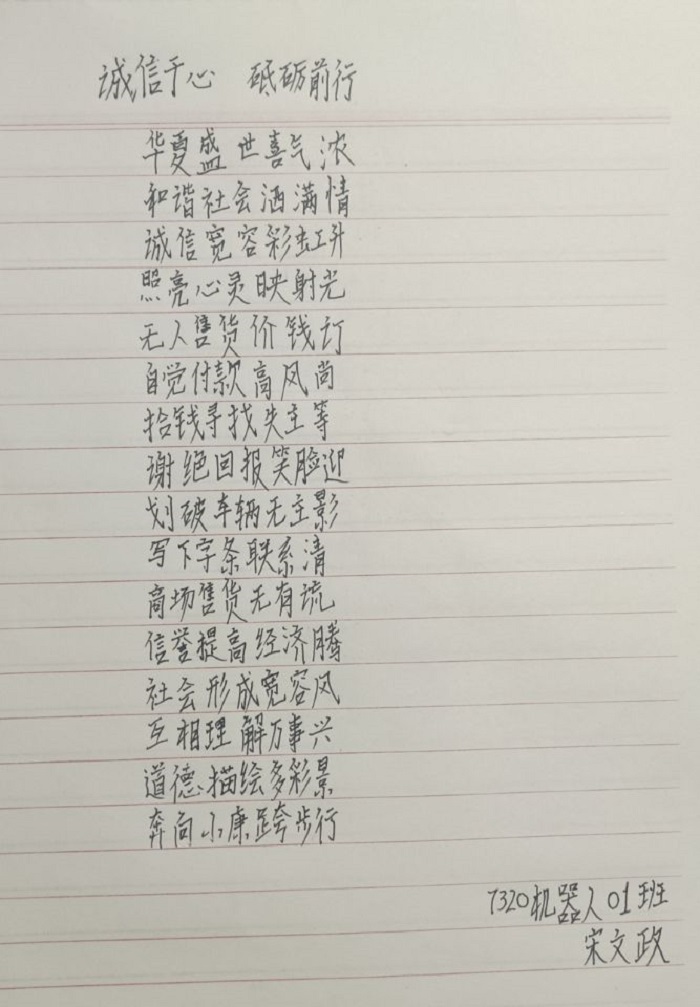 诚信于心 砥砺前行
华夏盛世喜气浓
和谐社会洒满情
诚信宽容彩虹升
照亮心灵映射光
无人售货价钱订
自觉付款高风尚
拾钱寻找失主等
谢绝回报笑脸迎
划破车辆无主影
写下字条联系清
商场售货无有谎
信誉提高经济腾
社会形成宽容风
互相理解万事兴
道德描绘多彩景
奔向小康跨步行
7320机器人01班
宋文政